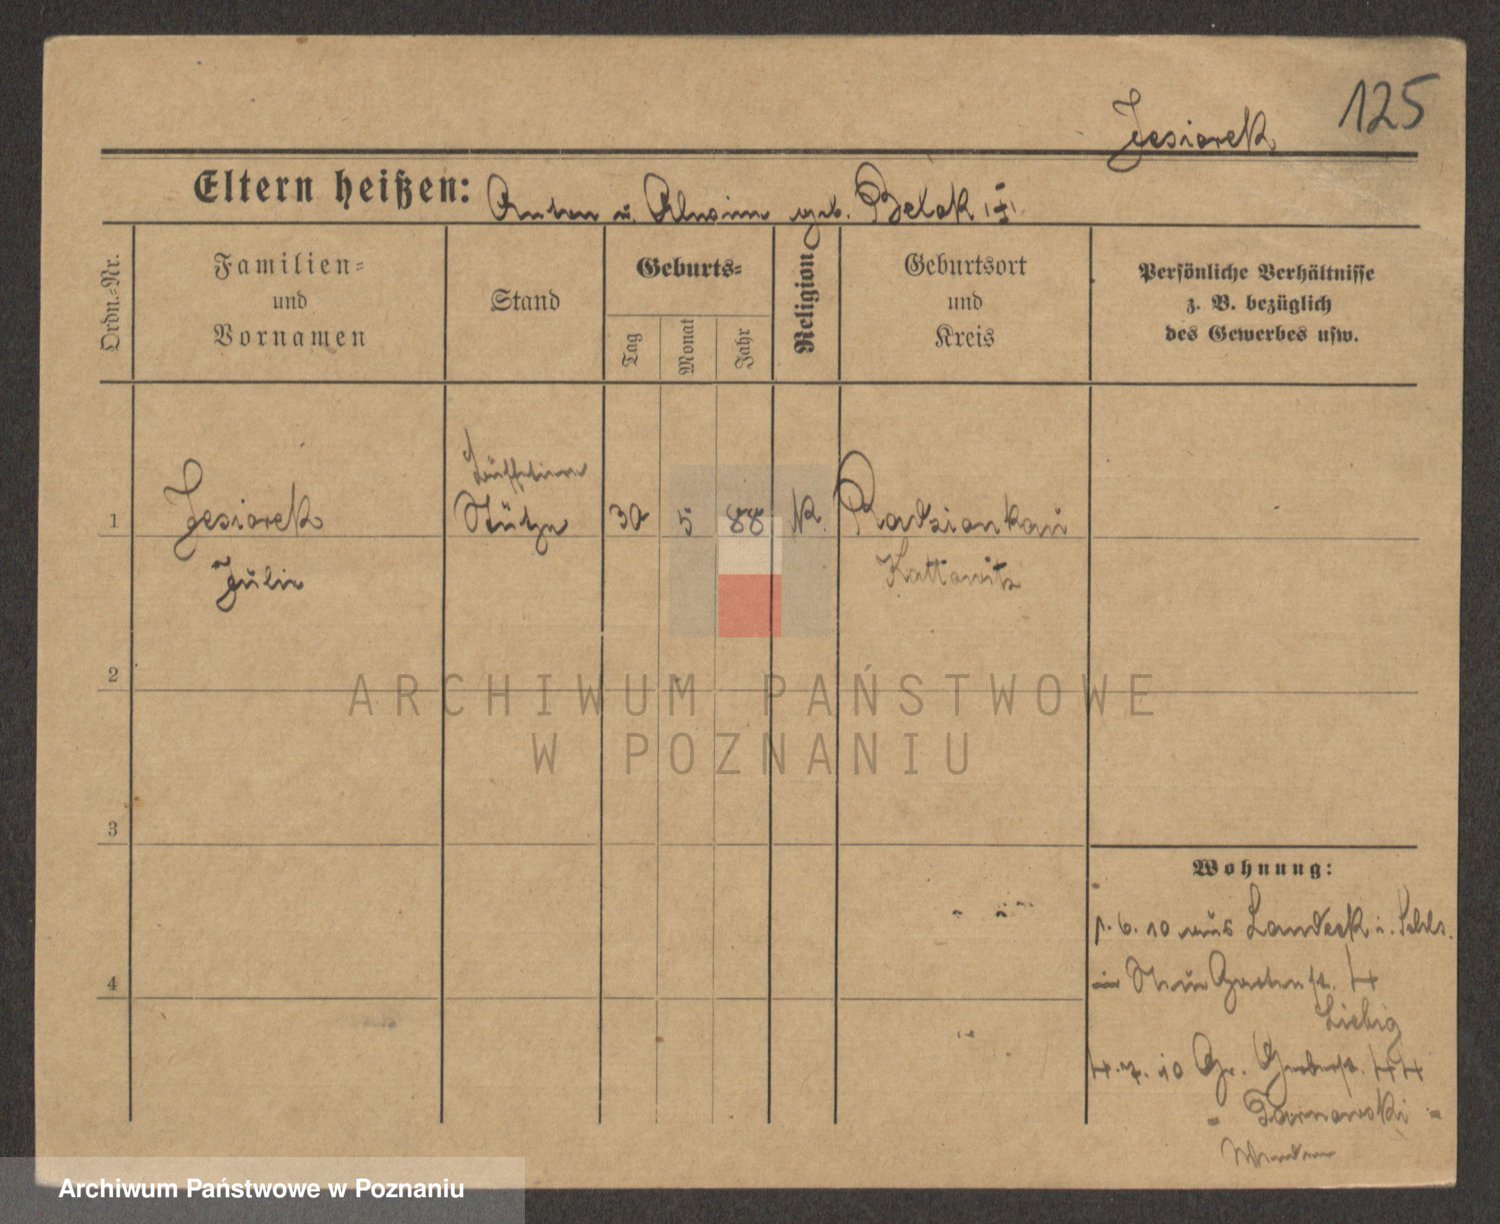 125
Jesiorek
Eltern heißen: Anton u. geb. Belok
Ordn.-Nr.
Familien-
und
Vornamen
Stand
Geburts-
Tag
Monat
Jahr
Religion
Geburtsort
und
Kreis
Persönliche Verhältnisse
z. B. bezüglich
des Gewerbes usw.
1
Jesiorek
Julie
Stütze
30
5
88
K.
Radzionkau
Kattowitz
2
3
4
Wohnung:
1. 6. 10 aus Landeck i. Schls.
in Neue Gartenstr. 4
Liebig
4. 7. 10 Gr. Gerberstr. 44
- Tarnowski -
ARCHIWUM PAŃSTWOWE
W POZNANIU
Archiwum Państwowe w Poznaniu